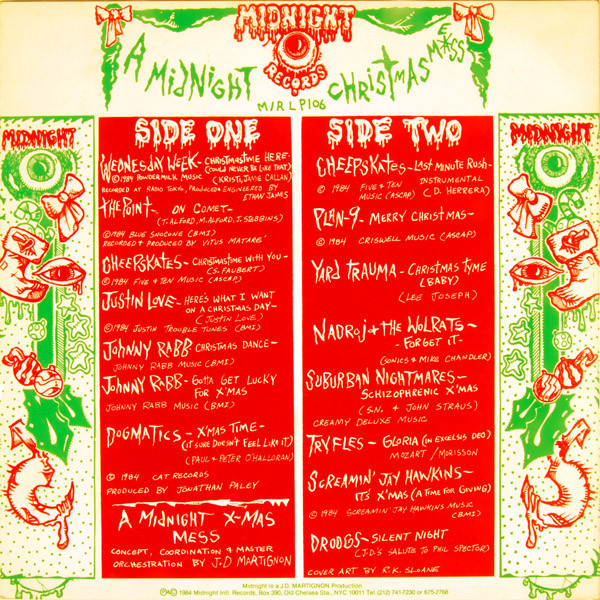 MIDNIGHT
RECORDS
A MIDNIGHT CHRISTMAS MESS
MIRLP106
MIDNIGHT
MIDNIGHT
SIDE ONE
WEDNESDAY WEEK - CHRISTMASTIME HERE -
(COULD NEVER BE LIKE THAT)
© 1984 POWDERMILK MUSIC (KRISTI, JANIE CALLAN)
RECORDED AT RADIO TOKYO, PRODUCED & ENGINEERED BY
ETHAN JAMES
THE POINT - ON COMET -
(T. ALFORD, M. ALFORD, J. STEBBINS)
© 1984 BLUE SNOCONE (BMI)
RECORDED & PRODUCED BY VITUS MATARE'
CHEEPSKATES - CHRISTMASTIME WITH YOU -
(S. FAUBERT)
© 1984 FIVE & TEN MUSIC (ASCAP)
JUSTIN LOVE - HERE'S WHAT I WANT
ON A CHRISTMAS DAY -
(JUSTIN LOVE)
© 1984 JUSTIN TROUBLE TUNES (BMI)
JOHNNY RABB CHRISTMAS DANCE -
JOHNNY RABB MUSIC (BMI)
JOHNNY RABB - GOTTA GET LUCKY
FOR X'MAS
JOHNNY RABB MUSIC (BMI)
DOGMATICS - X'MAS TIME -
(IT SURE DOESN'T FEEL LIKE IT)
(PAUL & PETER O'HALLORAN)
© 1984 CAT RECORDS
PRODUCED BY JONATHAN PALEY
A MIDNIGHT X-MAS
MESS
CONCEPT, COORDINATION & MASTER
ORCHESTRATION BY J.D MARTIGNON
SIDE TWO
CHEEPSKATES - LAST MINUTE RUSH -
© 1984 FIVE & TEN INSTRUMENTAL
MUSIC (ASCAP) (D. HERRERA)
PLAN-9 - MERRY CHRISTMAS -
© 1984 CRISWELL MUSIC (ASCAP)
YARD TRAUMA - CHRISTMAS TYME
(BABY)
(LEE JOSEPH)
NADROJ & THE WOLRATS -
- FORGET IT -
(SONICS & MIKE CHANDLER)
SUBURBAN NIGHTMARES -
SCHIZOPHRENIC X'MAS
(S.N. & JOHN STRAUS)
CREAMY DELUXE MUSIC
TRYFLES - GLORIA (IN EXCELSIS DEO)
MOZART / MORISSON
SCREAMIN' JAY HAWKINS -
IT'S X'MAS (A TIME FOR GIVING)
© 1984 SCREAMIN' JAY HAWKINS MUSIC
(BMI)
DROOGS - SILENT NIGHT
(J.D.'S SALUTE TO PHIL SPECTOR)
COVER ART BY R.K. SLOANE
Midnight is a J.D. MARTIGNON Production
℗© 1984 Midnight Intl. Records, Box 390, Old Chelsea Sta., NYC 10011 Tel. (212) 741-7230 or 675-2768